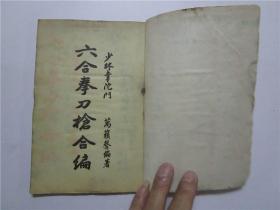 少林韋陀門
萬籟聲編著
六合拳刀槍合編